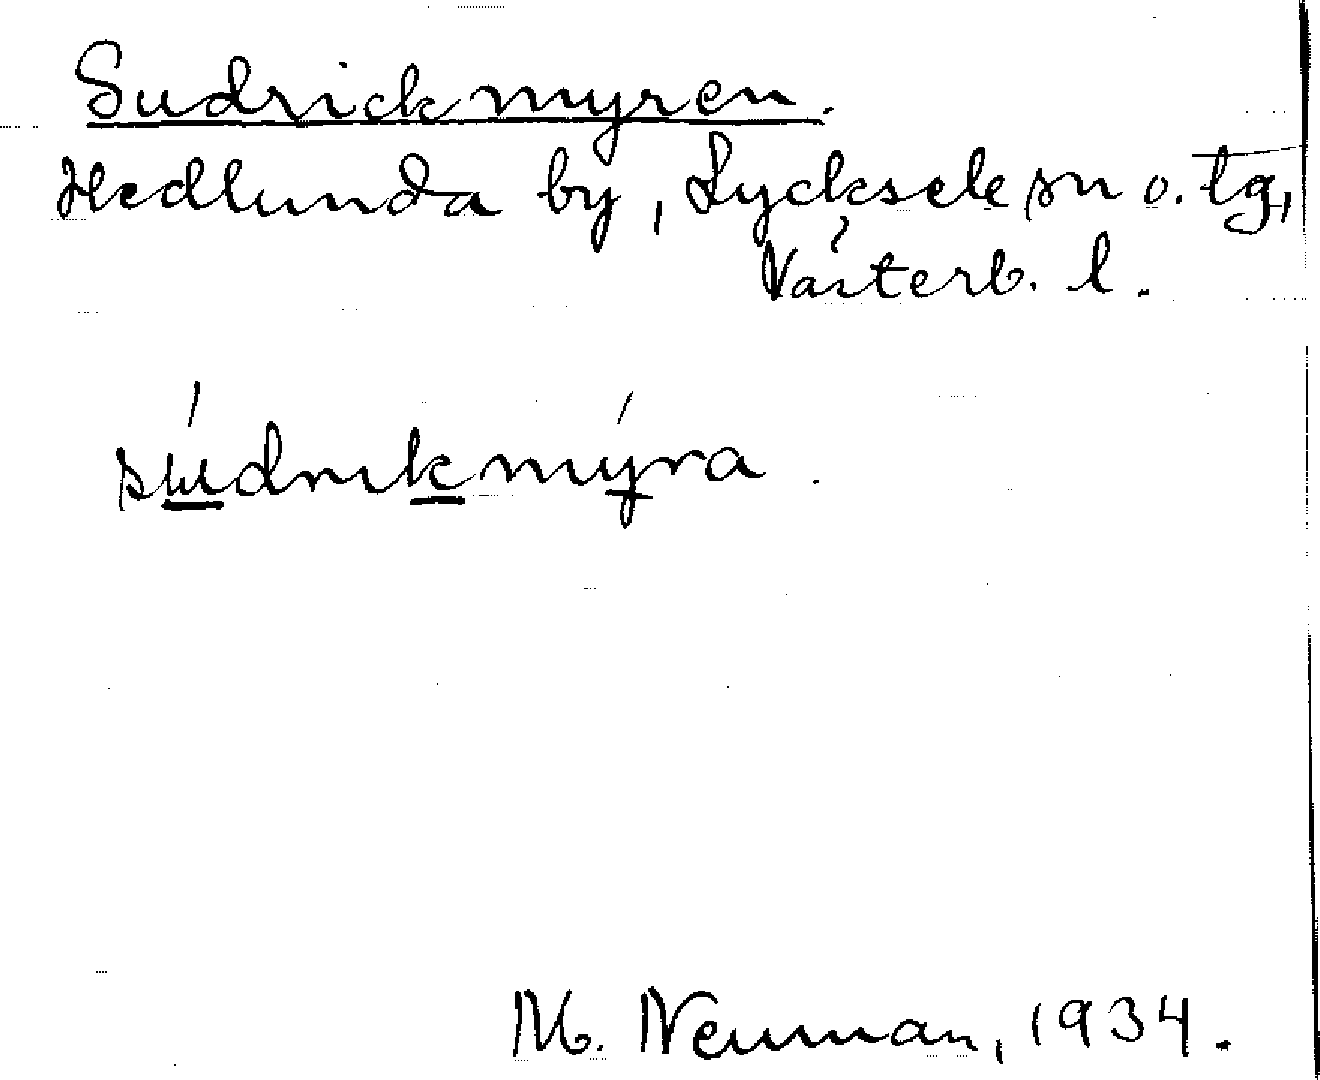 Sudrickmyren.
Hedlunda by, Lycksele sn o. tg,
Västerb. l.
súdrıkmýra.
M. Neuman, 1934.